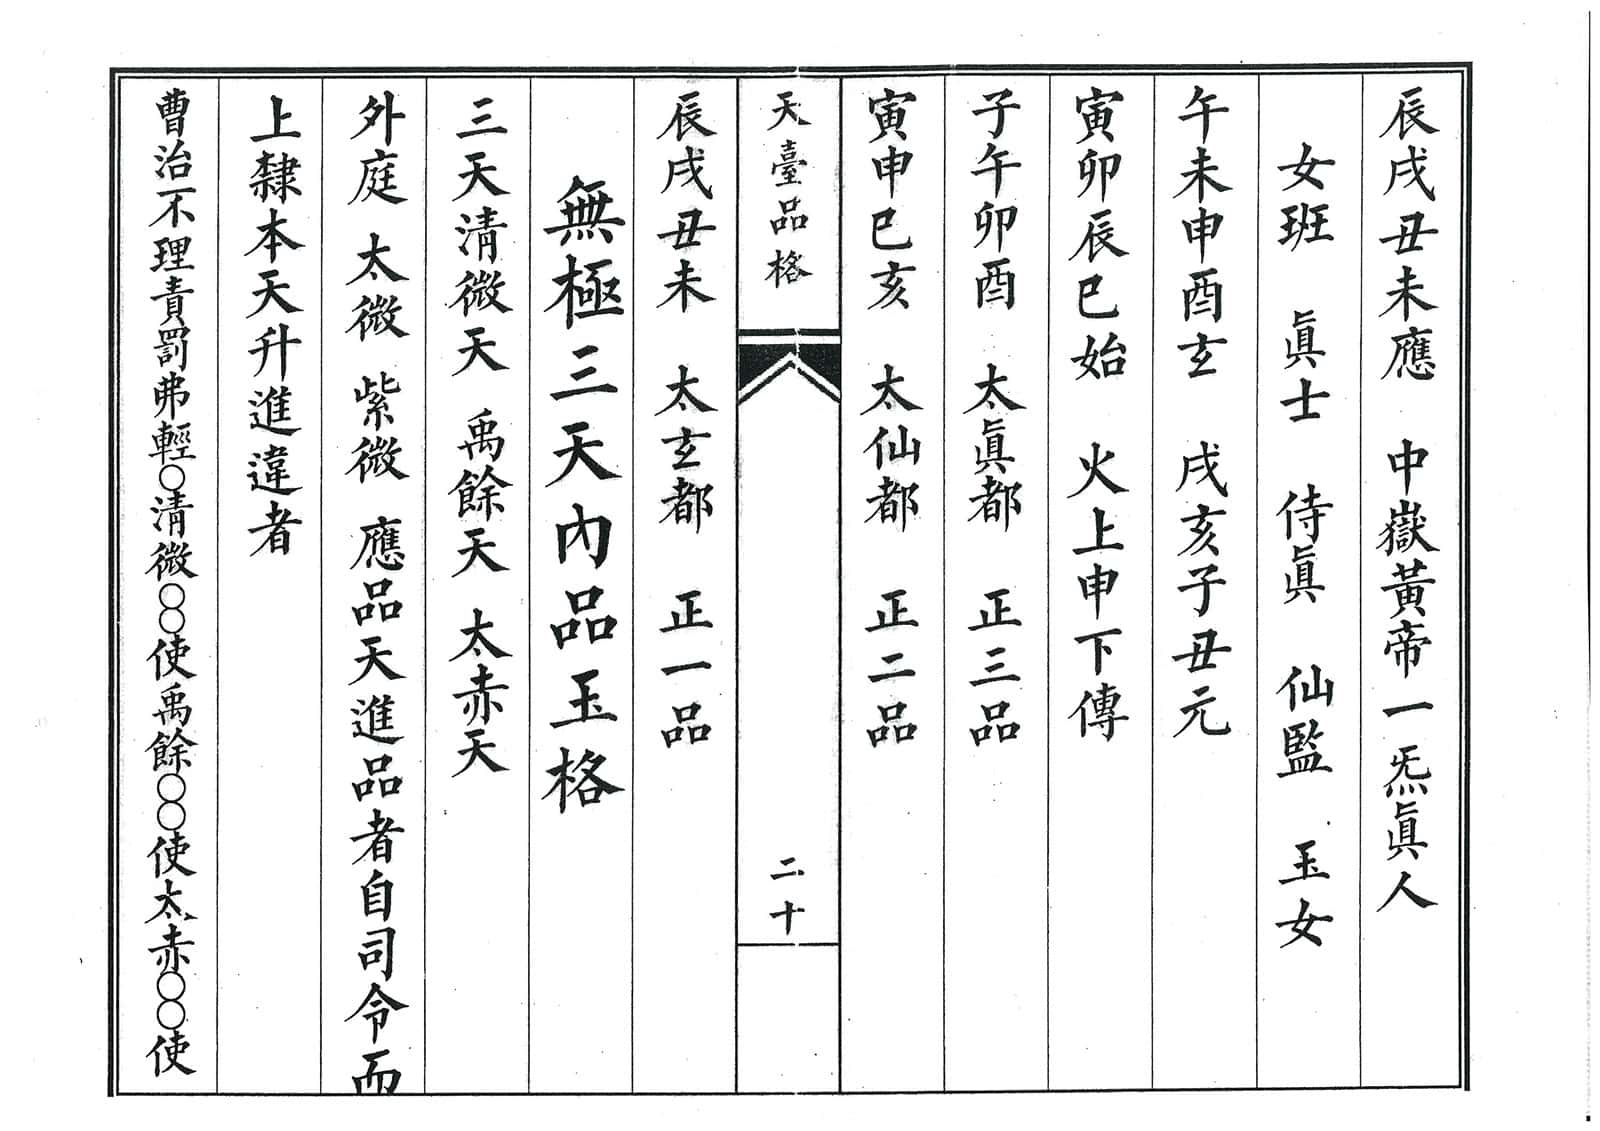 辰戌丑未應　中嶽黃帝一炁眞人
女班　眞士　侍眞　仙監　玉女
午未申酉玄　戌亥子丑元
寅卯辰巳始　火上申下傳
子午卯酉　太眞都　正三品
寅申巳亥　太仙都　正二品
天臺品格　二十
辰戌丑未　太玄都　正一品
無極三天內品玉格
三天清微天　禹餘天　太赤天
外庭　太微　紫微　應品天進品者自司令而
上隸本天升進違者
曹治不理責罰弗輕〇清微〇〇使禹餘〇〇使太赤〇〇使